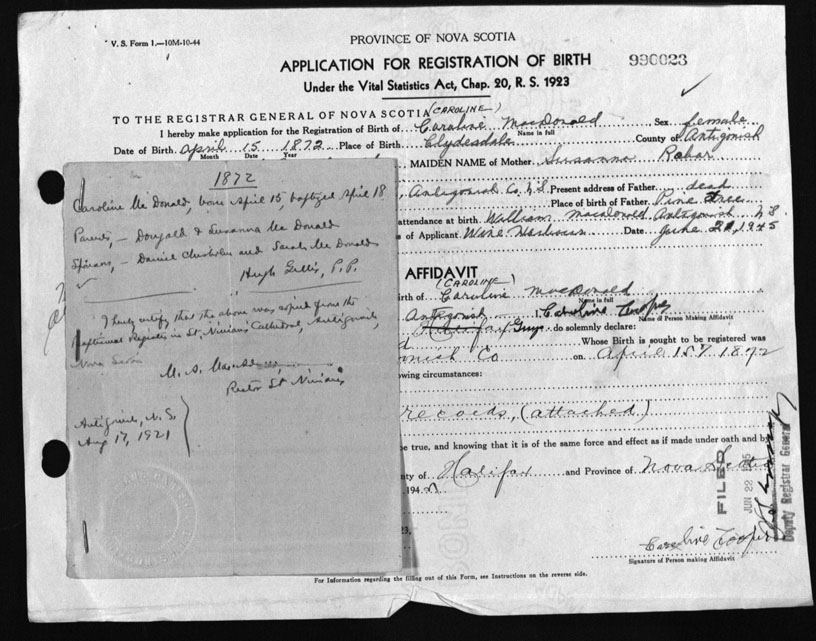 V. S. Form 1.—10M-10-44
PROVINCE OF NOVA SCOTIA
APPLICATION FOR REGISTRATION OF BIRTH
990023
Under the Vital Statistics Act, Chap. 20, R. S. 1923
TO THE REGISTRAR GENERAL OF NOVA SCOTIA (CAROLINE)
I hereby make application for the Registration of Birth of Caroline MacDonald Sex female
Name in full
Date of Birth April 15 1872 Place of Birth Clydesdale County of Antigonish
Month Date Year
MAIDEN NAME of Mother Susanna
Antigonish Co N.S. Present address of Father dead
Place of Birth of Father Pine Tree
attendance at birth William Macdonald Antigonish N S
of Applicant Wine Harbour Date June 21, 1945
1872
Caroline Mc Donald, born April 15, baptized April 18
Parents, — Dougall & Susanna Mc Donald
Sponsors, — Daniel Chisholm and Sarah Mc Donald
Hugh Gillis, P.P.
I hereby certify that the above was copied from the
Baptismal Register in St. Ninian's Cathedral, Antigonish,
Nova Scotia
M. A.
Rector St Ninian's
Antigonish, N.S.
Aug 17, 1921
AFFIDAVIT
(CAROLINE)
Birth of Caroline MacDonald
Name in full
Antigonish I, Caroline Cooper
Name of Person Making Affidavit
Halifax Guys do solemnly declare:
Whose Birth is sought to be registered was
Co on April 15 1872
following circumstances:
records, (attached)
be true, and knowing that it is of the same force and effect as if made under oath and by
County of Halifax and Province of Nova Scotia
194
FILED
JUN 22 1945
Deputy Registrar General
Caroline Cooper
Signature of Person making Affidavit
For Information regarding the filling out of this Form, see Instructions on the reverse side.